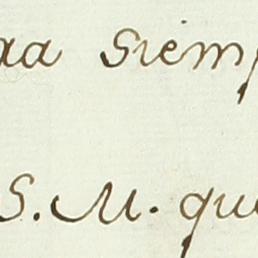 aa siemp
S. M. que